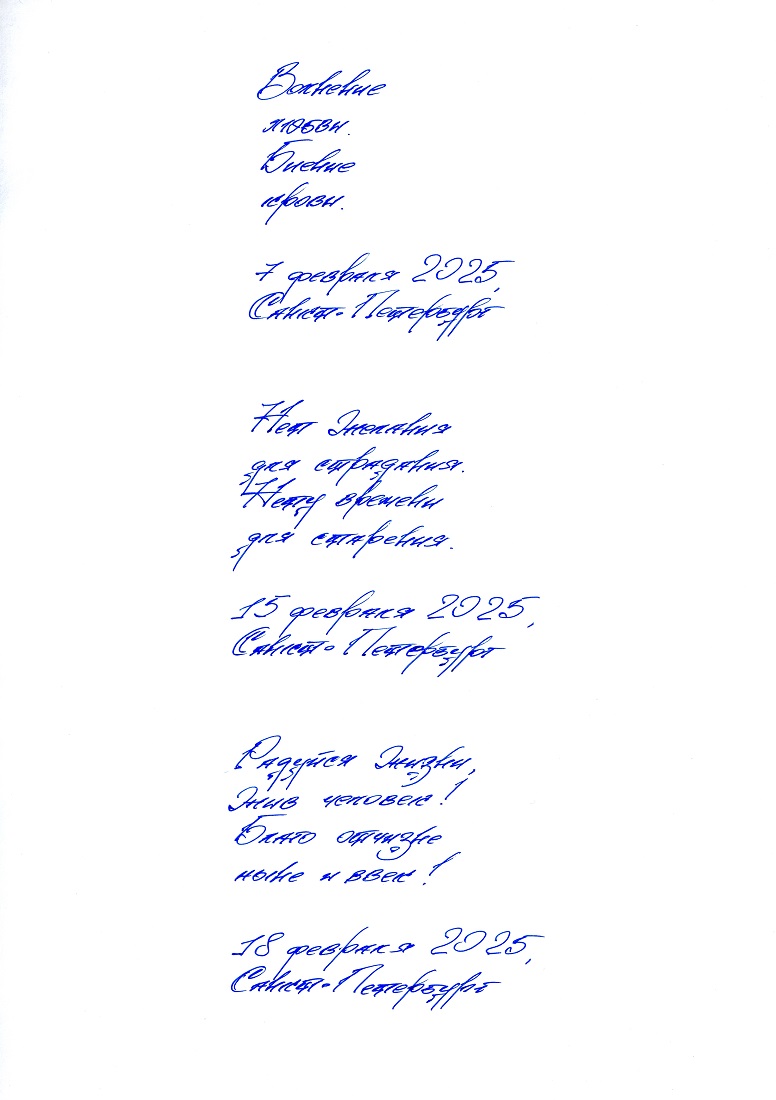 Волнение
любви.
Биение
крови.
7 февраля 2025,
Санкт-Петербург
Нет желания
для страдания.
Нету времени
для старения.
15 февраля 2025,
Санкт-Петербург
Радуйся жизни,
жив человек!
Благо отчизне
ныне и ввек!
18 февраля 2025,
Санкт-Петербург